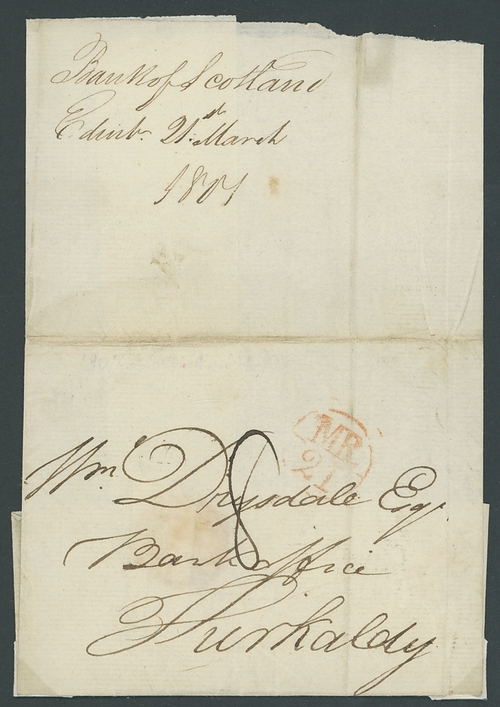 Bank of Scotland
Edinbr. 21st March
1801
MR
21
8
Wm. Drysdale Esqr.
Bank office
Kirkaldy